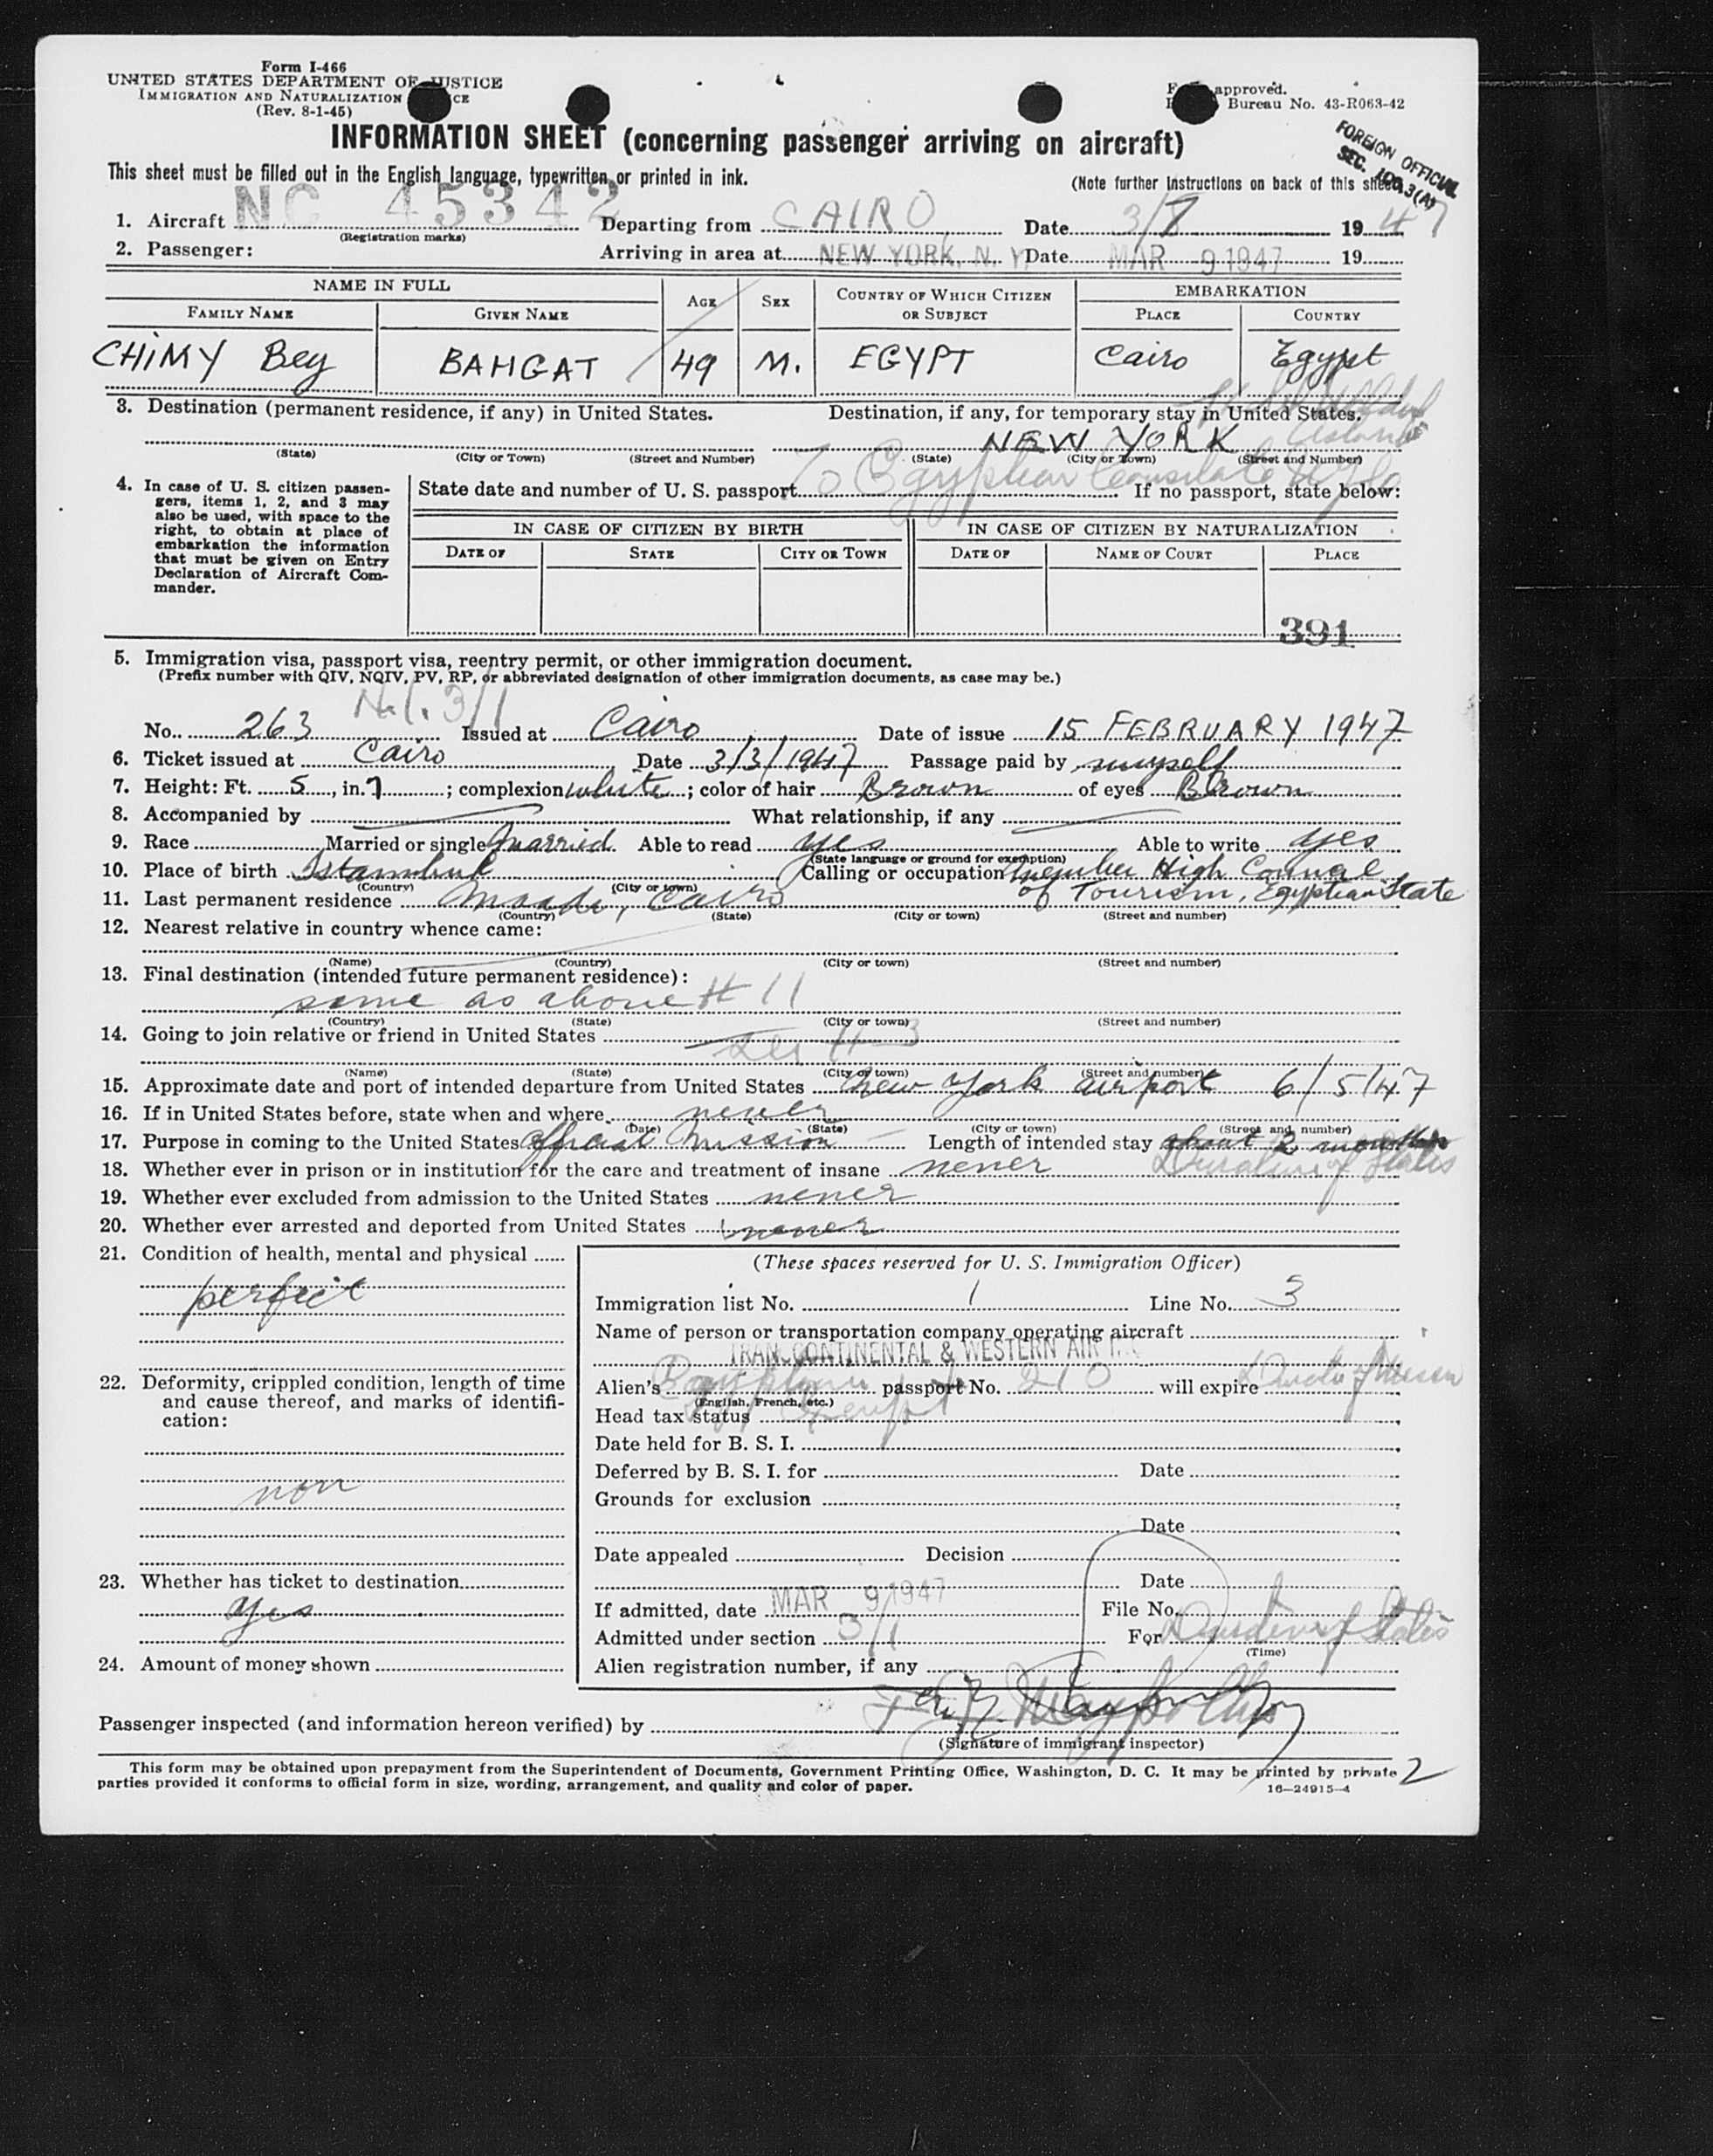 Form I-466
UNITED STATES DEPARTMENT OF JUSTICE
IMMIGRATION AND NATURALIZATION CE
(Rev. 8-1-45)
approved.
Bureau No. 43-R063-42
INFORMATION SHEET (concerning passenger arriving on aircraft)
FOREIGN OFFICIAL
SEC. 3(A)
This sheet must be filled out in the English language, typewritten or printed in ink.
(Note further instructions on back of this sheet)
1. Aircraft NC 45342 Departing from CAIRO Date 3/7 1947
(Registration marks)
2. Passenger: Arriving in area at NEW YORK, N. Y. Date MAR 9 1947 19
NAME IN FULL AGE SEX COUNTRY OF WHICH CITIZEN OR SUBJECT EMBARKATION
FAMILY NAME GIVEN NAME PLACE COUNTRY
CHIMY Bey BAHGAT 49 M. EGYPT Cairo Egypt
3. Destination (permanent residence, if any) in United States. Destination, if any, for temporary stay in United States.
NEW YORK
(State) (City or Town) (Street and Number) (State) (City or Town) (Street and Number)
To Egyptian Consulate
4. In case of U. S. citizen passen-
gers, items 1, 2, and 3 may
also be used, with space to the
right, to obtain at place of
embarkation the information
that must be given on Entry
Declaration of Aircraft Com-
mander.
State date and number of U. S. passport If no passport, state below:
IN CASE OF CITIZEN BY BIRTH IN CASE OF CITIZEN BY NATURALIZATION
DATE OF STATE CITY OR TOWN DATE OF NAME OF COURT PLACE
391
5. Immigration visa, passport visa, reentry permit, or other immigration document.
(Prefix number with QIV, NQIV, PV, RP, or abbreviated designation of other immigration documents, as case may be.)
3/1
No. 263 Issued at Cairo Date of issue 15 FEBRUARY 1947
6. Ticket issued at Cairo Date 3/3/1947 Passage paid by myself
7. Height: Ft. 5, in. 7; complexion white; color of hair Brown of eyes Brown
8. Accompanied by What relationship, if any
9. Race Married or single Married. Able to read yes Able to write yes
(State language or ground for exemption)
10. Place of birth Istambul Calling or occupation Member High Counael
(Country) (City or town)
of Tourism, Egyptian State
11. Last permanent residence Maadi, Cairo
(Country) (State) (City or town) (Street and number)
12. Nearest relative in country whence came:
(Name) (Country) (City or town) (Street and number)
13. Final destination (intended future permanent residence):
same as above # 11
(Country) (State) (City or town) (Street and number)
14. Going to join relative or friend in United States
# 3
(Name) (State) (City or town) (Street and number)
15. Approximate date and port of intended departure from United States New York airport 6/5/47
16. If in United States before, state when and where never
(Date) (State) (City or town) (Street and number)
17. Purpose in coming to the United States official Mission Length of intended stay about 2 months
Duration of Status
18. Whether ever in prison or in institution for the care and treatment of insane never
19. Whether ever excluded from admission to the United States never
20. Whether ever arrested and deported from United States never
21. Condition of health, mental and physical
perfect
22. Deformity, crippled condition, length of time
and cause thereof, and marks of identifi-
cation:
non
23. Whether has ticket to destination
yes
24. Amount of money shown
(These spaces reserved for U. S. Immigration Officer)
Immigration list No. 1 Line No. 3
Name of person or transportation company operating aircraft
TRANSCONTINENTAL & WESTERN AIR
Alien's Egyptian passport No. 210 will expire
(English, French, etc.)
Head tax status Exempt
Date held for B. S. I.
Deferred by B. S. I. for Date
Grounds for exclusion
Date
Date appealed Decision
Date
If admitted, date MAR 9 1947 File No.
Admitted under section 3/1 For Duration of Status
(Time)
Alien registration number, if any
Passenger inspected (and information hereon verified) by
(Signature of immigrant inspector)
This form may be obtained upon prepayment from the Superintendent of Documents, Government Printing Office, Washington, D. C. It may be printed by private
parties provided it conforms to official form in size, wording, arrangement, and quality and color of paper.
2
16—24915-4